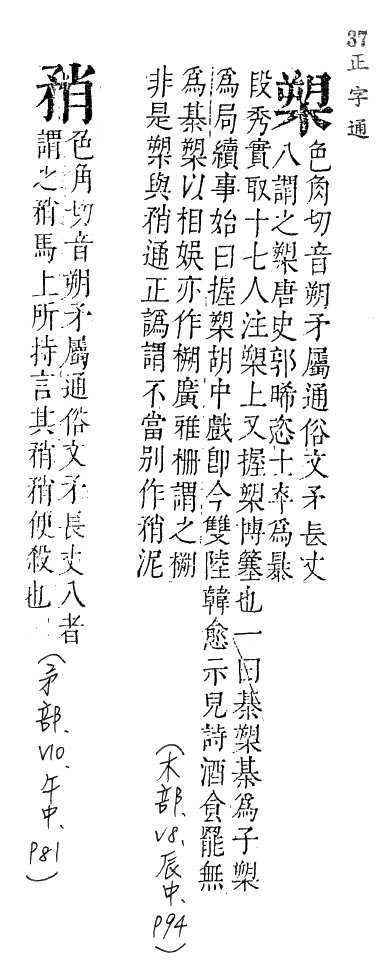 37
正字通
槊
色角切音朔矛屬通俗文矛長丈
八謂之槊唐史郭晞恣士卒爲暴
段秀實取十七人注槊上又握槊博簺也一曰棊槊棊爲子槊
爲局續事始曰握槊胡中戲卽今雙陸韓愈示兒詩酒食罷無
爲棊槊以相娛亦作㮶廣雅柵謂之㮶
非是槊與矟通正譌謂不當別作矟泥
（木部、V8、辰中、P94）
矟
色角切音朔矛屬通俗文矛長丈八者
謂之矟馬上所持言其矟矟便殺也
（矛部、V10、午中、P81）